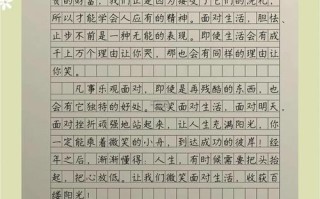 贵的财富，我们正是因为接受了它们的洗礼，
所以才能学会人应有的精神。面对生活，胆怯
止步不前是一种无能的表现。即使生活会有成
千上万个理由让你哭，那也会有同样的理由让
你笑。
凡事乐观面对，即使是再残酷的东西，也
会有它独特的好处。微笑面对生活，面对明天
面对挫折顽强地站起来，让人生充满阳光，你
一定能乘着微笑的小舟，到达成功的彼岸！经
年之后，渐渐懂得，人生，有时候需要把头抬
起，把心放低。让我们微笑面对生活，收获百
缕阳光！